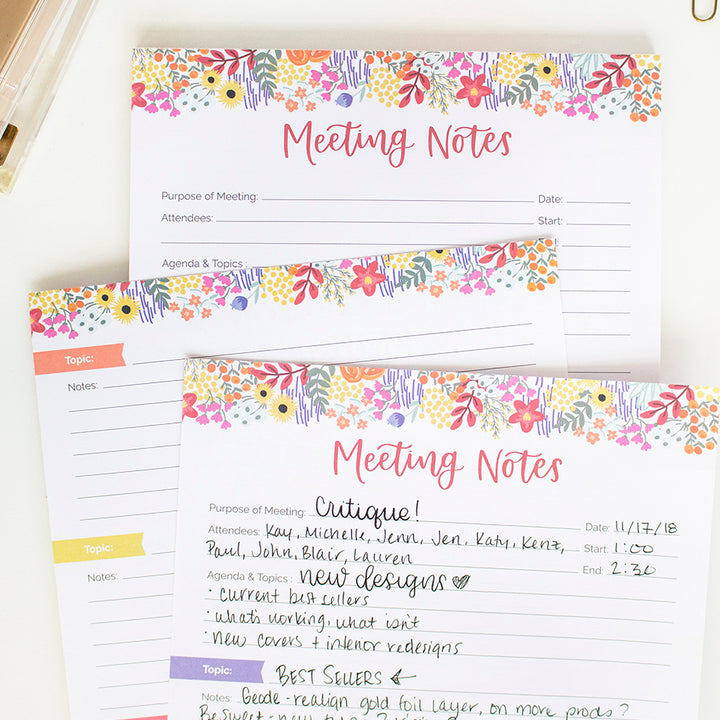 Meeting Notes
Purpose of Meeting: Date:
Attendees: Start:
Agenda & Topics :
Topic:
Notes:
Topic:
Notes:
Meeting Notes
Purpose of Meeting: Critique! Date: 11/17/18
Attendees: Kay, Michelle, Jenn, Jen, Katy, Kenz, Start: 1:00
Paul, John, Blair, Lauren End: 2:30
Agenda & Topics : new designs
· current best sellers
· what's working, what isn't
· new covers + interior redesigns
Topic: BEST SELLERS ←
Notes: Geode - realign gold foil layer, on more prods?